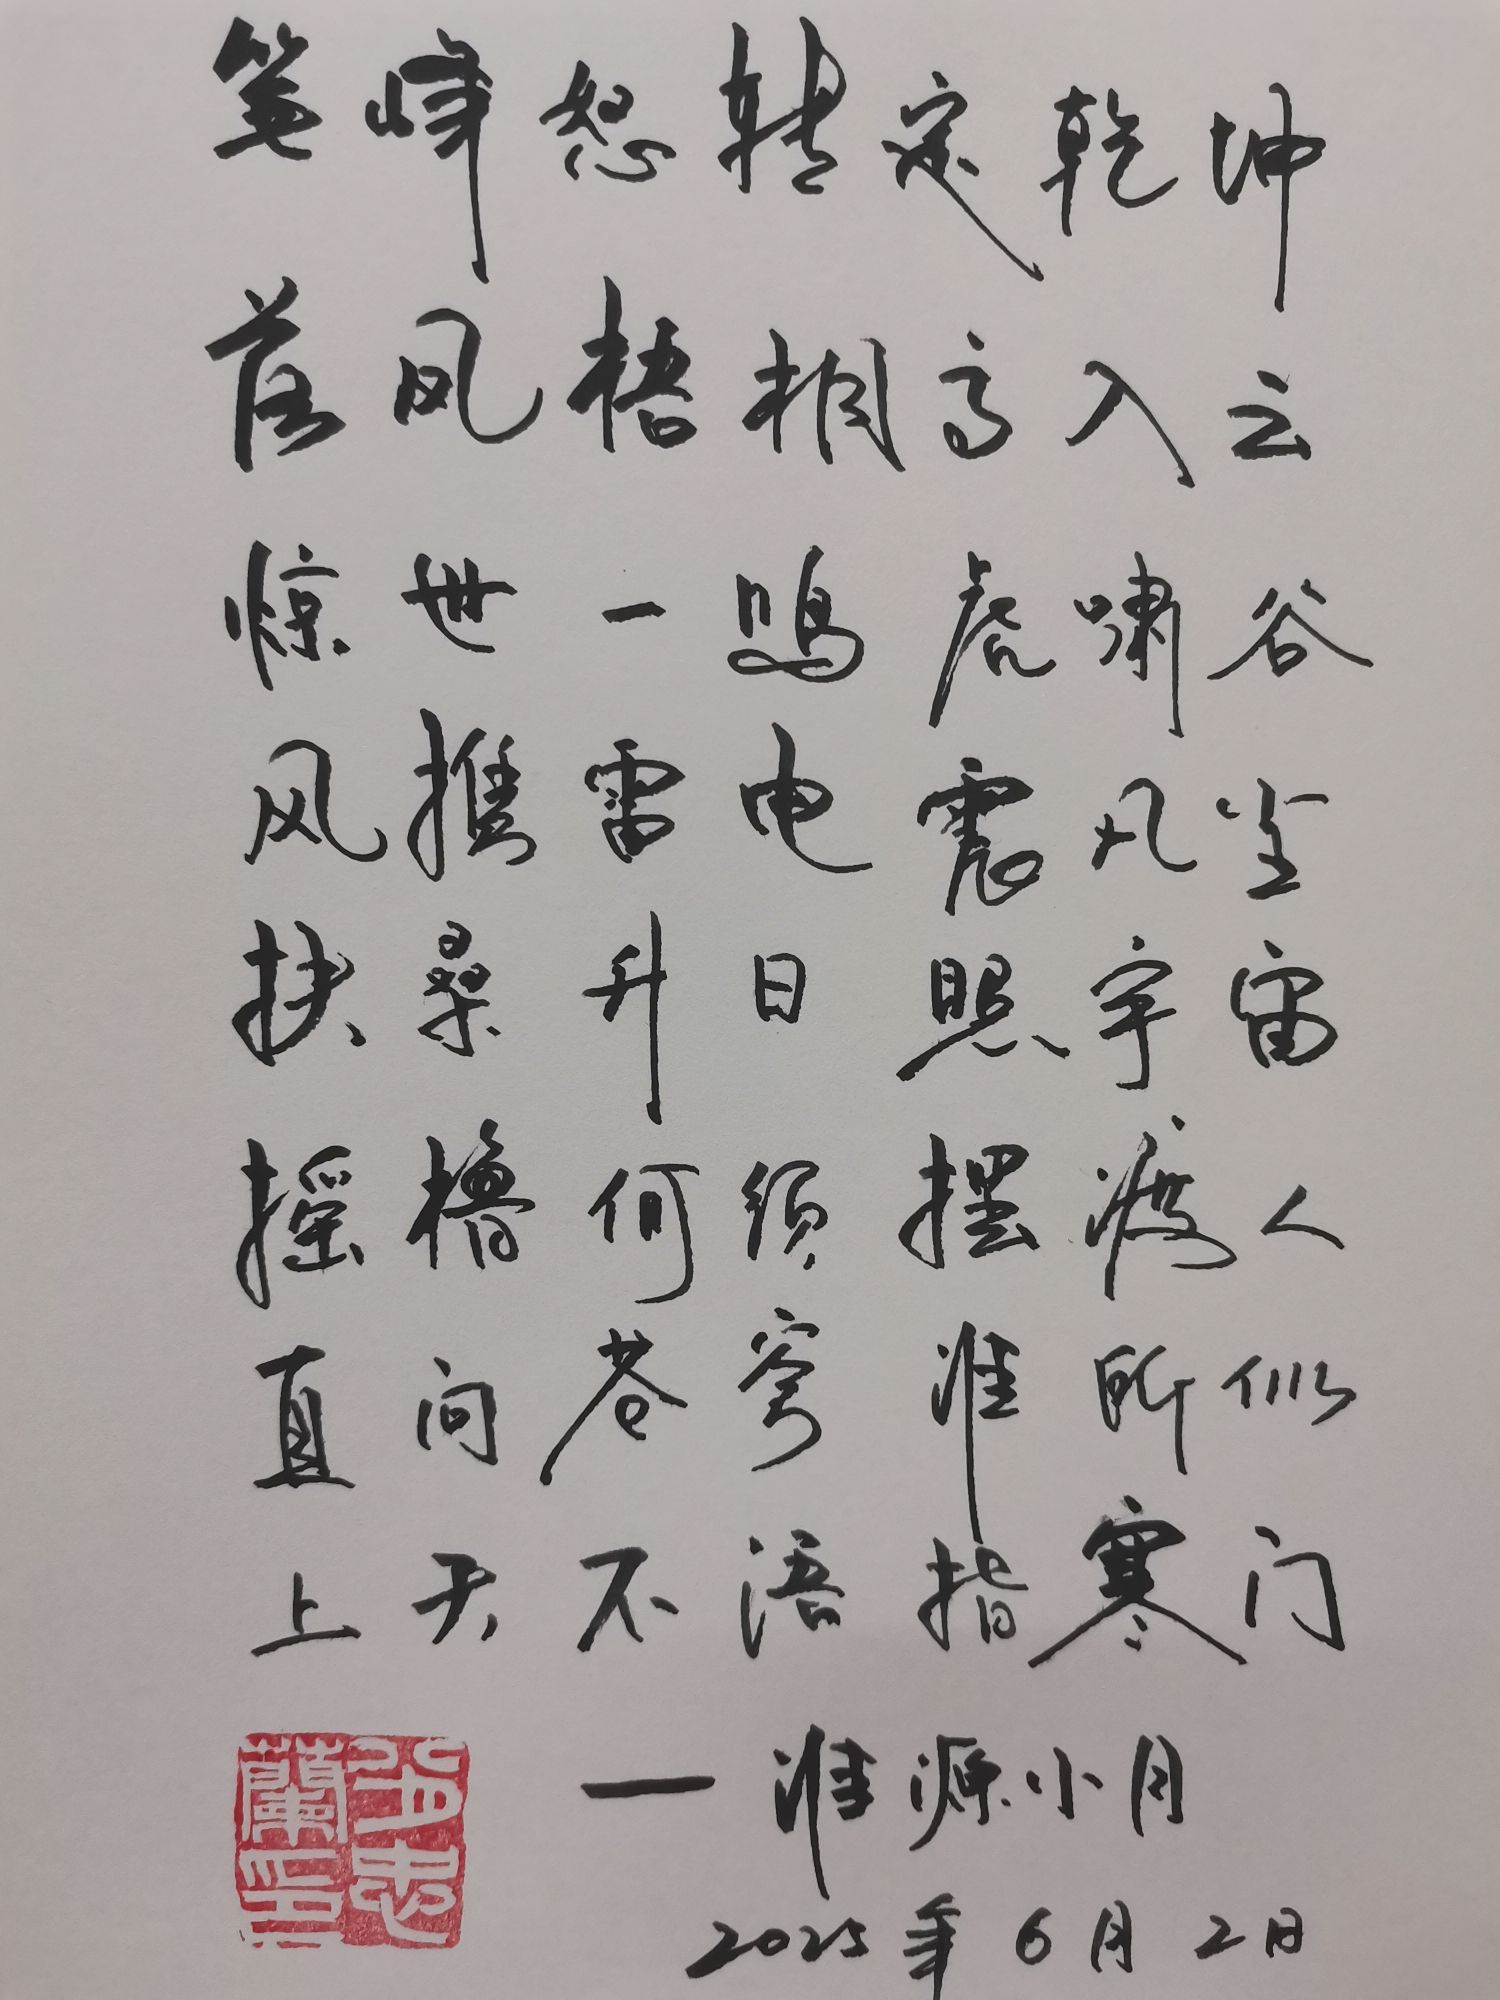 笔峰怒转定乾坤
落凤梧桐高入云
惊世一鸣虎啸谷
风携雷电震凡尘
扶桑升日照宇宙
摇橹何须摆渡人
直问苍穹谁所似
上天不语指寒门
一淮源小月
2025年6月2日